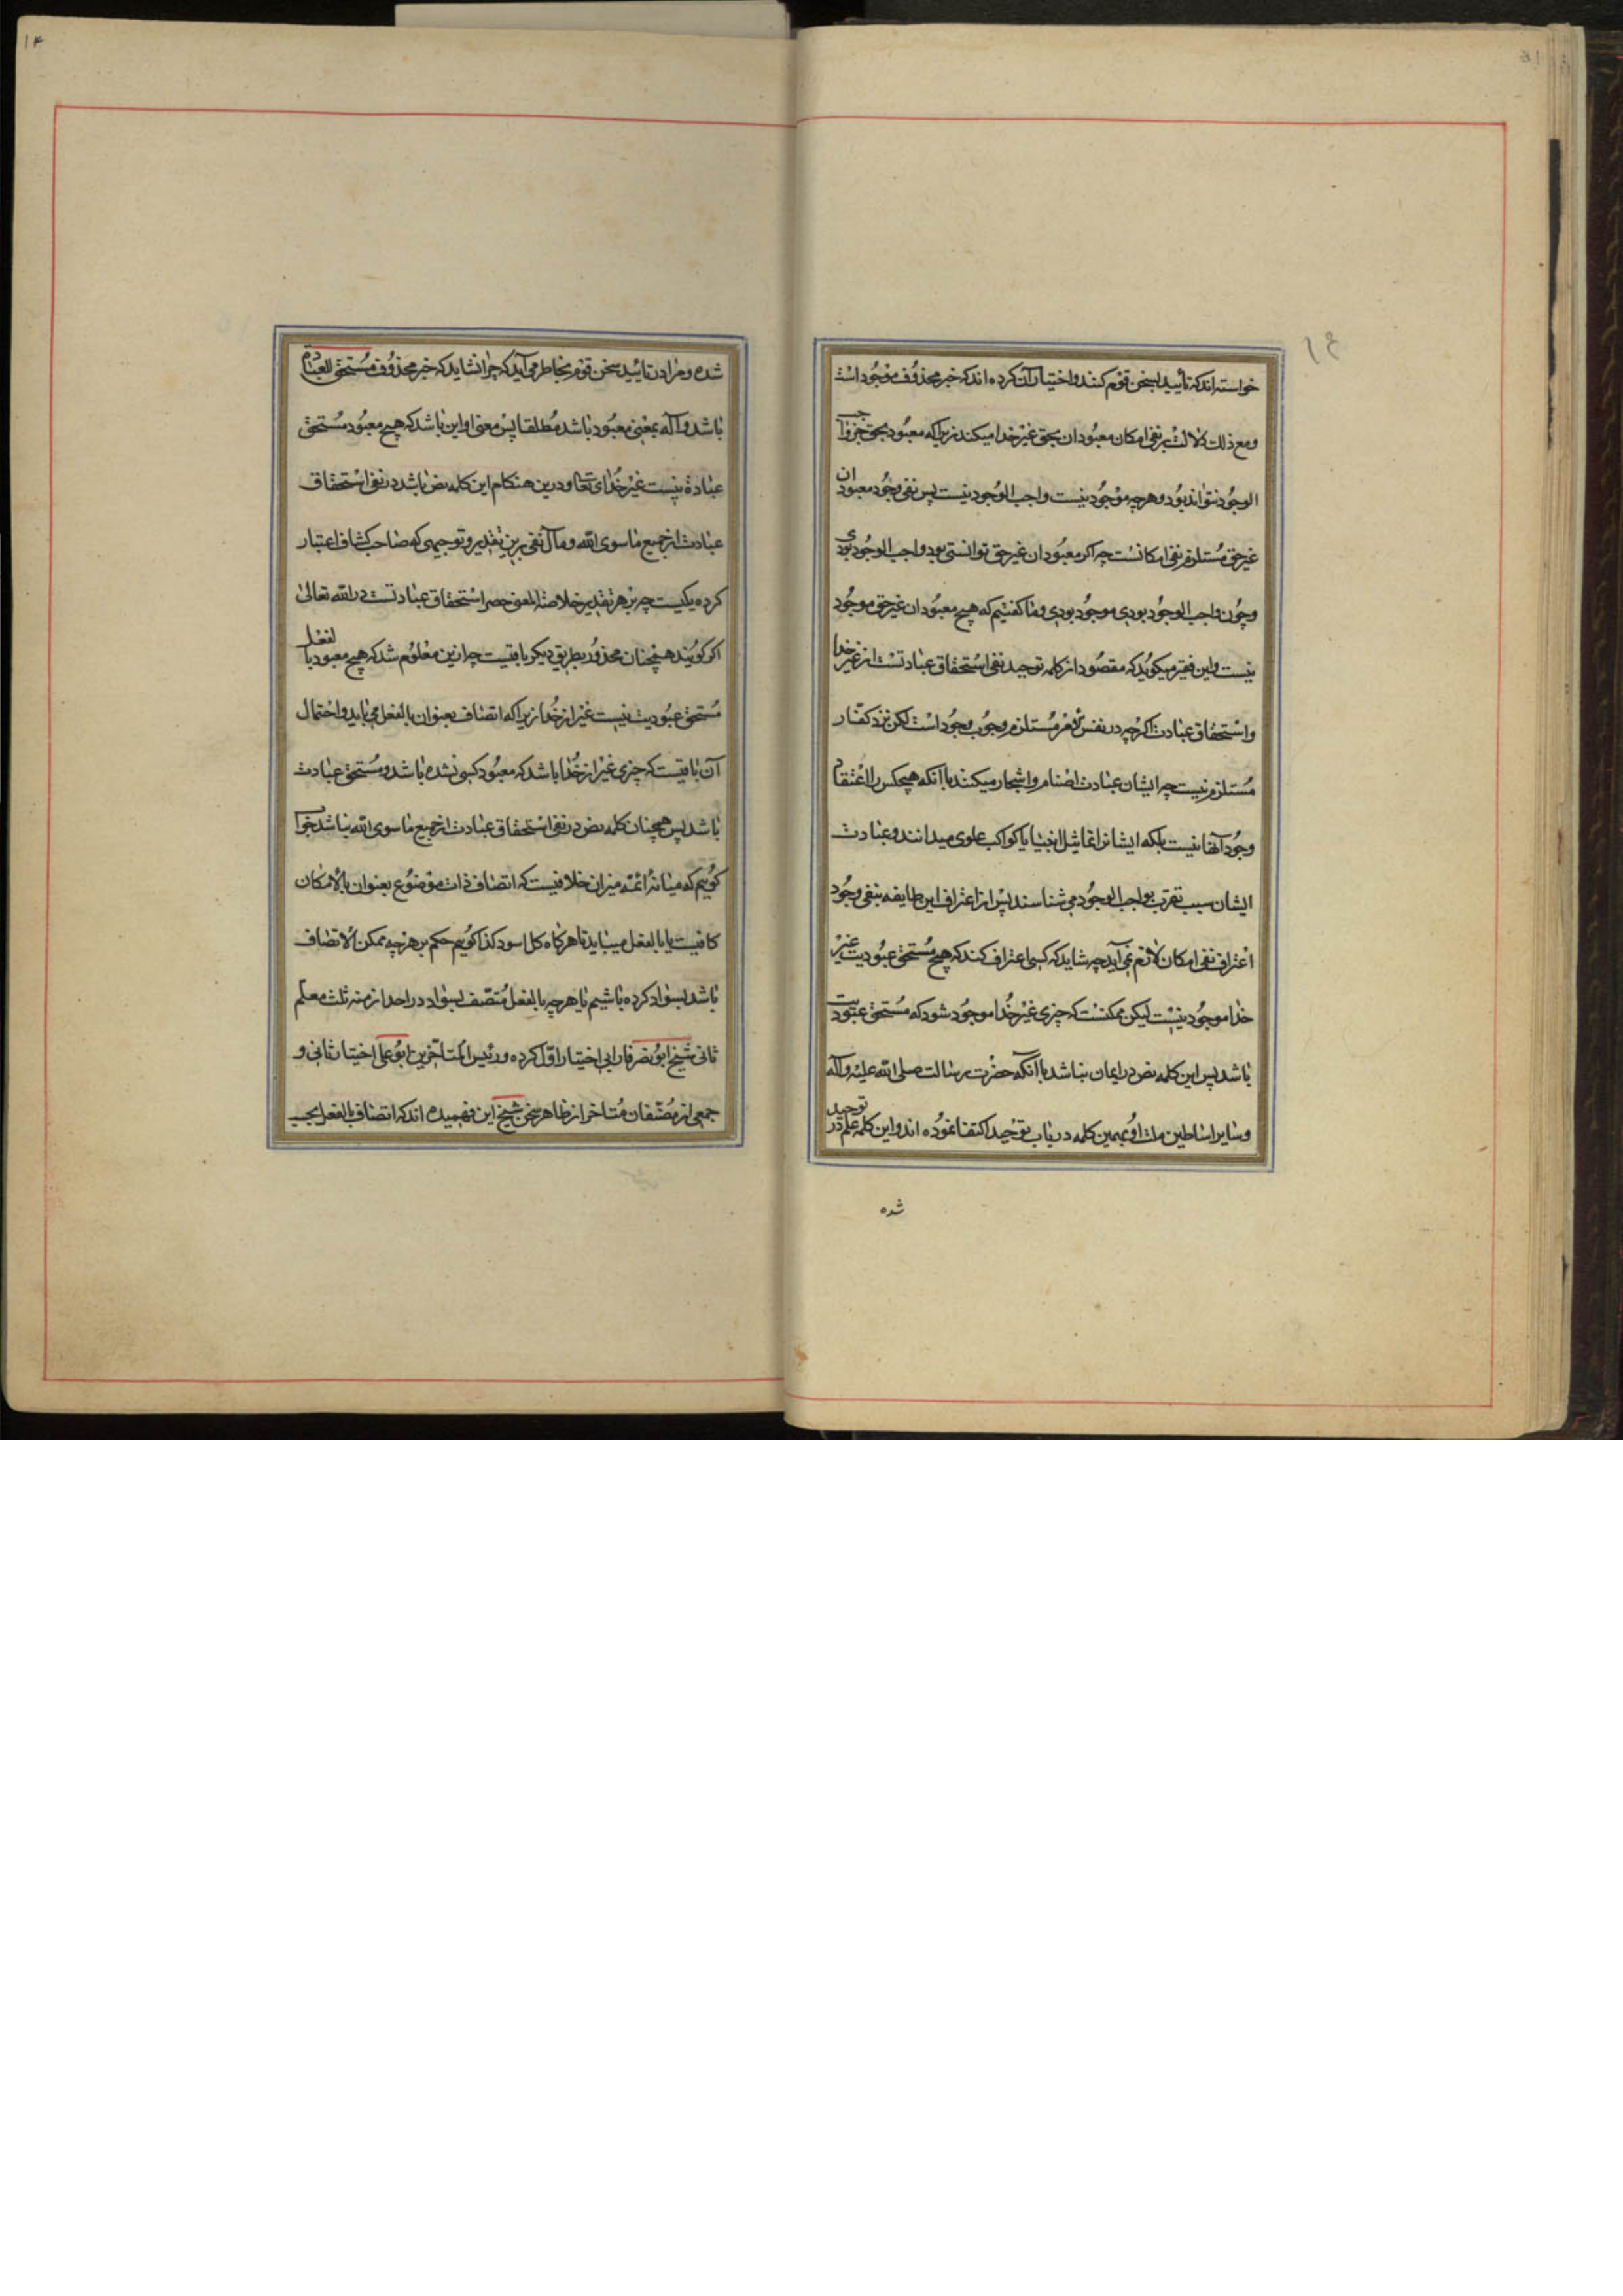 خواسته‌اند که تأیید این سخن قوم کنند و اختیار آن کرده‌اند که خبر محذوف موجود است
و مع ذلک دلالت بر نفی امکان معبودان بحق غیر خدا میکند زیرا که معبود بحق جز واجب
الوجود نتواند بود و هر چه موجود نیست واجب الوجود نیست پس نفی وجود معبودان
غیر حق مستلزم نفی امکانست چه اکر معبودان غیر حق توانستی بود واجب الوجود بودی
و چون واجب الوجود بودی موجود بودی و ما کفتیم که هیچ معبودان غیر حق موجود
نیست و این فقیر میکوید که مقصود از کلمه توحید نفی استحقاق عبادتست از غیر خدا
و استحقاق عبادت اکرچه در نفس لامر مستلزم وجوب وجود است لکن نزد کفار
مستلزم نیست چه ایشان عبادت اصنام و اشجار میکنند با آنکه هیچکس را اعتقاد
وجود آنها نیست بلکه ایشانرا تماثیل انبیا یا کواکب علوی میدانند و عبادت
ایشان سبب تقرب بواجب الوجود می شناسند پس از اعتراف این طایفه بنفی وجود
اعتراف نفی امکان لازم نمی آید چه شاید که کسی اعتراف کند که هیچ مستحق عبودیت غیر
خدا موجود نیست لیکن ممکنست که چیزی غیر خدا موجود شود که مستحق عبودیت
باشد پس این کلمه نص در ایمان نباشد با آنکه حضرت رسالت صلی الله علیه و آله
و سایر اساطین ملت او بهمین کلمه در باب توحید اکتفا نموده اند و این کلمه علم در توحید
شده
۱۴
شده و مرا در تایید سخن قوم بخاطر می آید که چرا نشاید که خبر محذوف مستحق للعبادة
باشد و آله بمعنی معبود باشد مطلقا پس معنی او این باشد که هیچ معبود مستحق
عبادة نیست غیر خدای تعا و درین هنکام این کلمه نص باشد در نفی استحقاق
عبادت از جمیع ما سوی الله و مآل نفی برین تقدیر و توجیهی که صاحب کشاف اعتبار
کرده یکیست چه بر هر تقدیر خلاصة المعنی حصر استحقاق عبادتست در الله تعالی
اکر کویند همچنان محذور بطریق دیکر باقیست چه ازین معلوم شد که هیچ معبود بالفعل
مستحق عبودیت نیست غیر از خدا زیرا که اتصاف بعنوان بالفعل می باید و احتمال
آن باقیست که چیزی غیر از خدا باشد که معبود کسی نشده باشد و مستحق عبادت
باشد پس همچنان کلمه نص در نفی استحقاق عبادت از جمیع ما سوی الله نباشد جواب
کوییم که میانهٔ ائمه میزان خلافیست که اتصاف ذات موضوع بعنوان بالامکان
کافیست یا بالفعل میباید تا هرکاه کل اسود کذا کوییم حکم بر هرچه ممکن الاتصاف
باشد بسواد کرده باشیم یا هرچه بالفعل متصف بسواد در احد ازمنه ثلث معلم
ثانی شیخ ابو نصر فارابی اختیار اول کرده و رئیس المتاخرین ابو علی اختیار ثانی و
جمعی از مصنفان متاخر از ظاهر سخن شیخ این فهمیده اند که اتصاف بالفعل بحسب